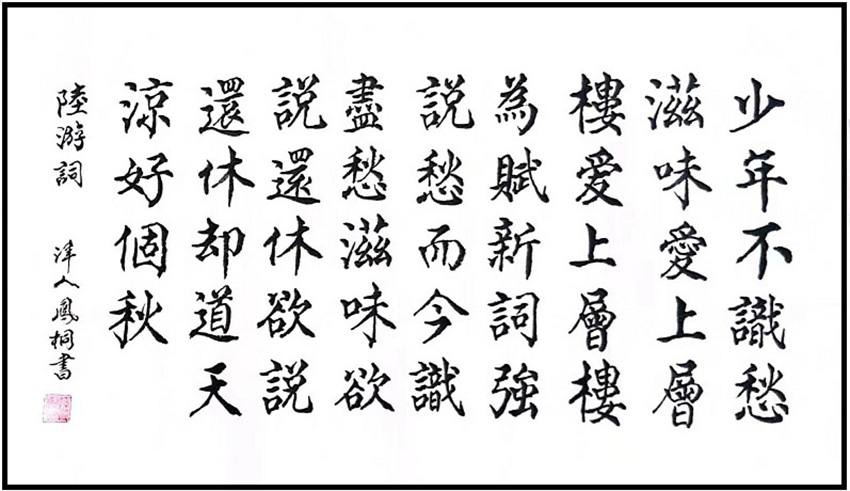 少年不識愁
滋味愛上層
樓愛上層樓
為賦新詞強
說愁而今識
盡愁滋味欲
說還休欲說
還休却道天
涼好個秋
陸游詞 津人鳳桐書